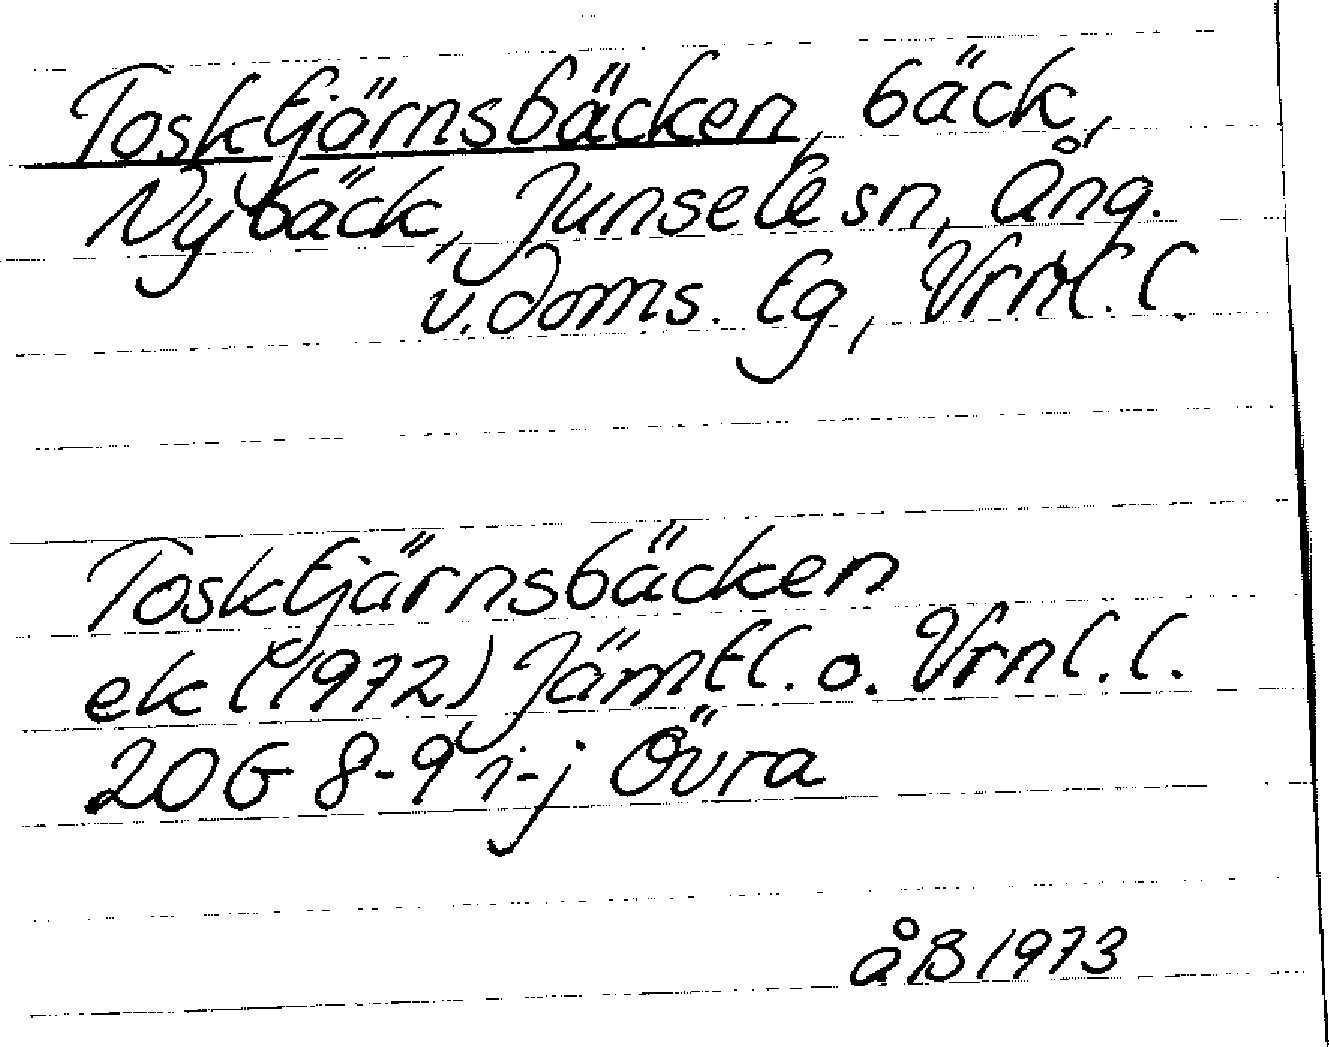 Tosktjärnsbäcken, bäck,
Nybäck, Junsele sn, Ång.
v. doms. tg, Vrnl. l.
Tosktjärnsbäcken
ek (1972) Jämtl. o. Vrnl. l.
20G 8-9 i-j Övra
åB 1973